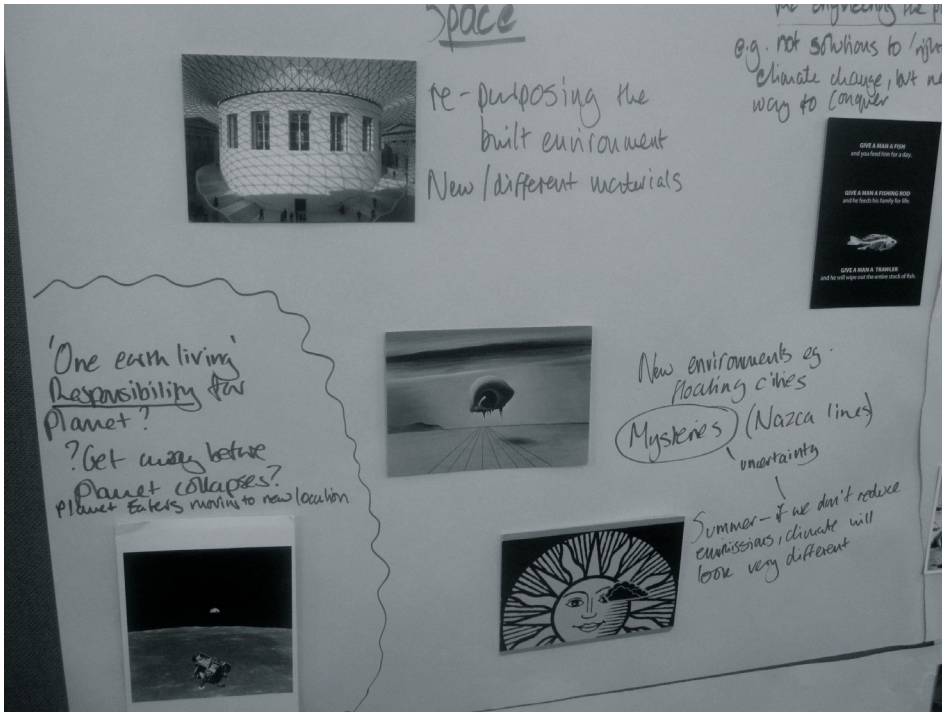 Space
re-purposing the
built environment
New/different materials
engineering the
e.g. not solutions to
climate change, but
way to conquer
GIVE A MAN A FISH
and you feed him for a day.
GIVE A MAN A FISHING ROD
and he feeds his family for life.
GIVE A MAN A TRAWLER
and he will wipe out the entire stock of fish.
'One earth living'
Responsibility for
Planet?
?Get away before
planet collapses?
Planet Eaters moving to new location
New environments eg.
floating cities
Mysteries (Nazca lines)
uncertainty
Summer – if we don't reduce
emmissions, climate will
look very different